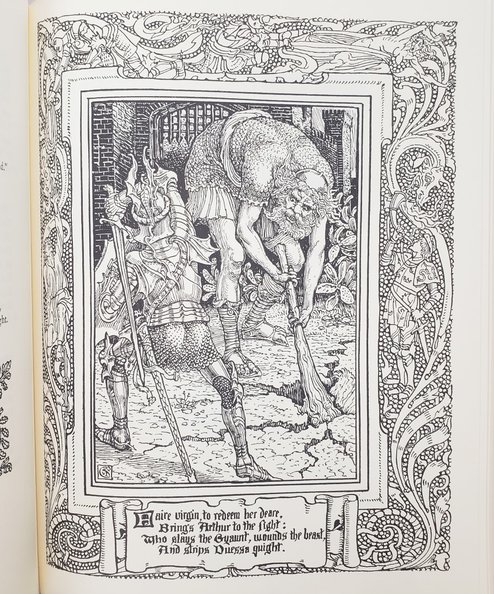 Faire virgin, to redeem her deare,
Brings Arthur to the fight:
Who slays the Gyaunt, wounds the beast,
And strips Duessa quight.